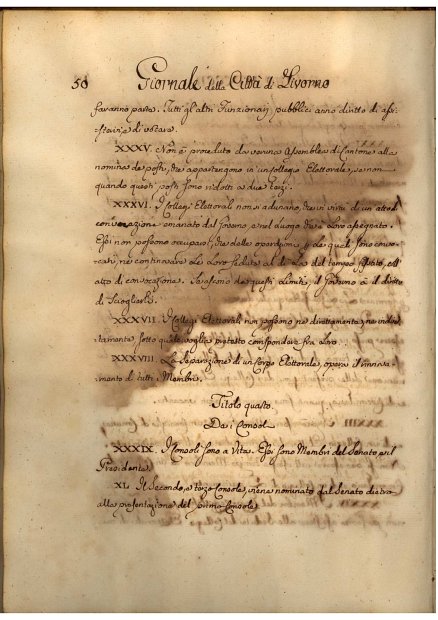 50 Giornale della Città di Livorno
faranno parte. Tutti gl'altri Funzionarj pubblici anno diritto di assi-
stervi e di votare.
XXXV. Non è proceduto da veruna Assemblea di Cantone alla
nomina de posti, che appartengono in un Collegio Elettorale, se non
quando questi posti sono ridotti a due terzi.
XXXVI. I Collegj Elettorali non si adunano, che in virtù di un atto di
convocazione emanato dal Governo, e nel luogo che è loro assegnato.
Essi non possono occuparsi, che delle operazioni, per le quali sono convo-
cati, ne continuare le loro sedute al di là del tempo fissato, coll'
atto di convocazione. Se essono da questi Limiti, il Governo à il diritto
di Sciogliergli.
XXXVII. I Collegj Elettorali non possono ne direttamente, ne indiret-
tamente, sotto qualsivoglia pretesto corrispondere fra Loro.
XXXVIII. La Separazione di un Corpo Elettorale, opera il rinnova-
mento di tutti i Membri.
Titolo quarto.
Da i Consoli
XXXIX. I Consoli sono a Vita. Essi sono Membri del Senato e il
Presidente.
XL. Il Secondo, e terzo Console, viene nominato dal Senato dietro
alla presentazione del primo Console